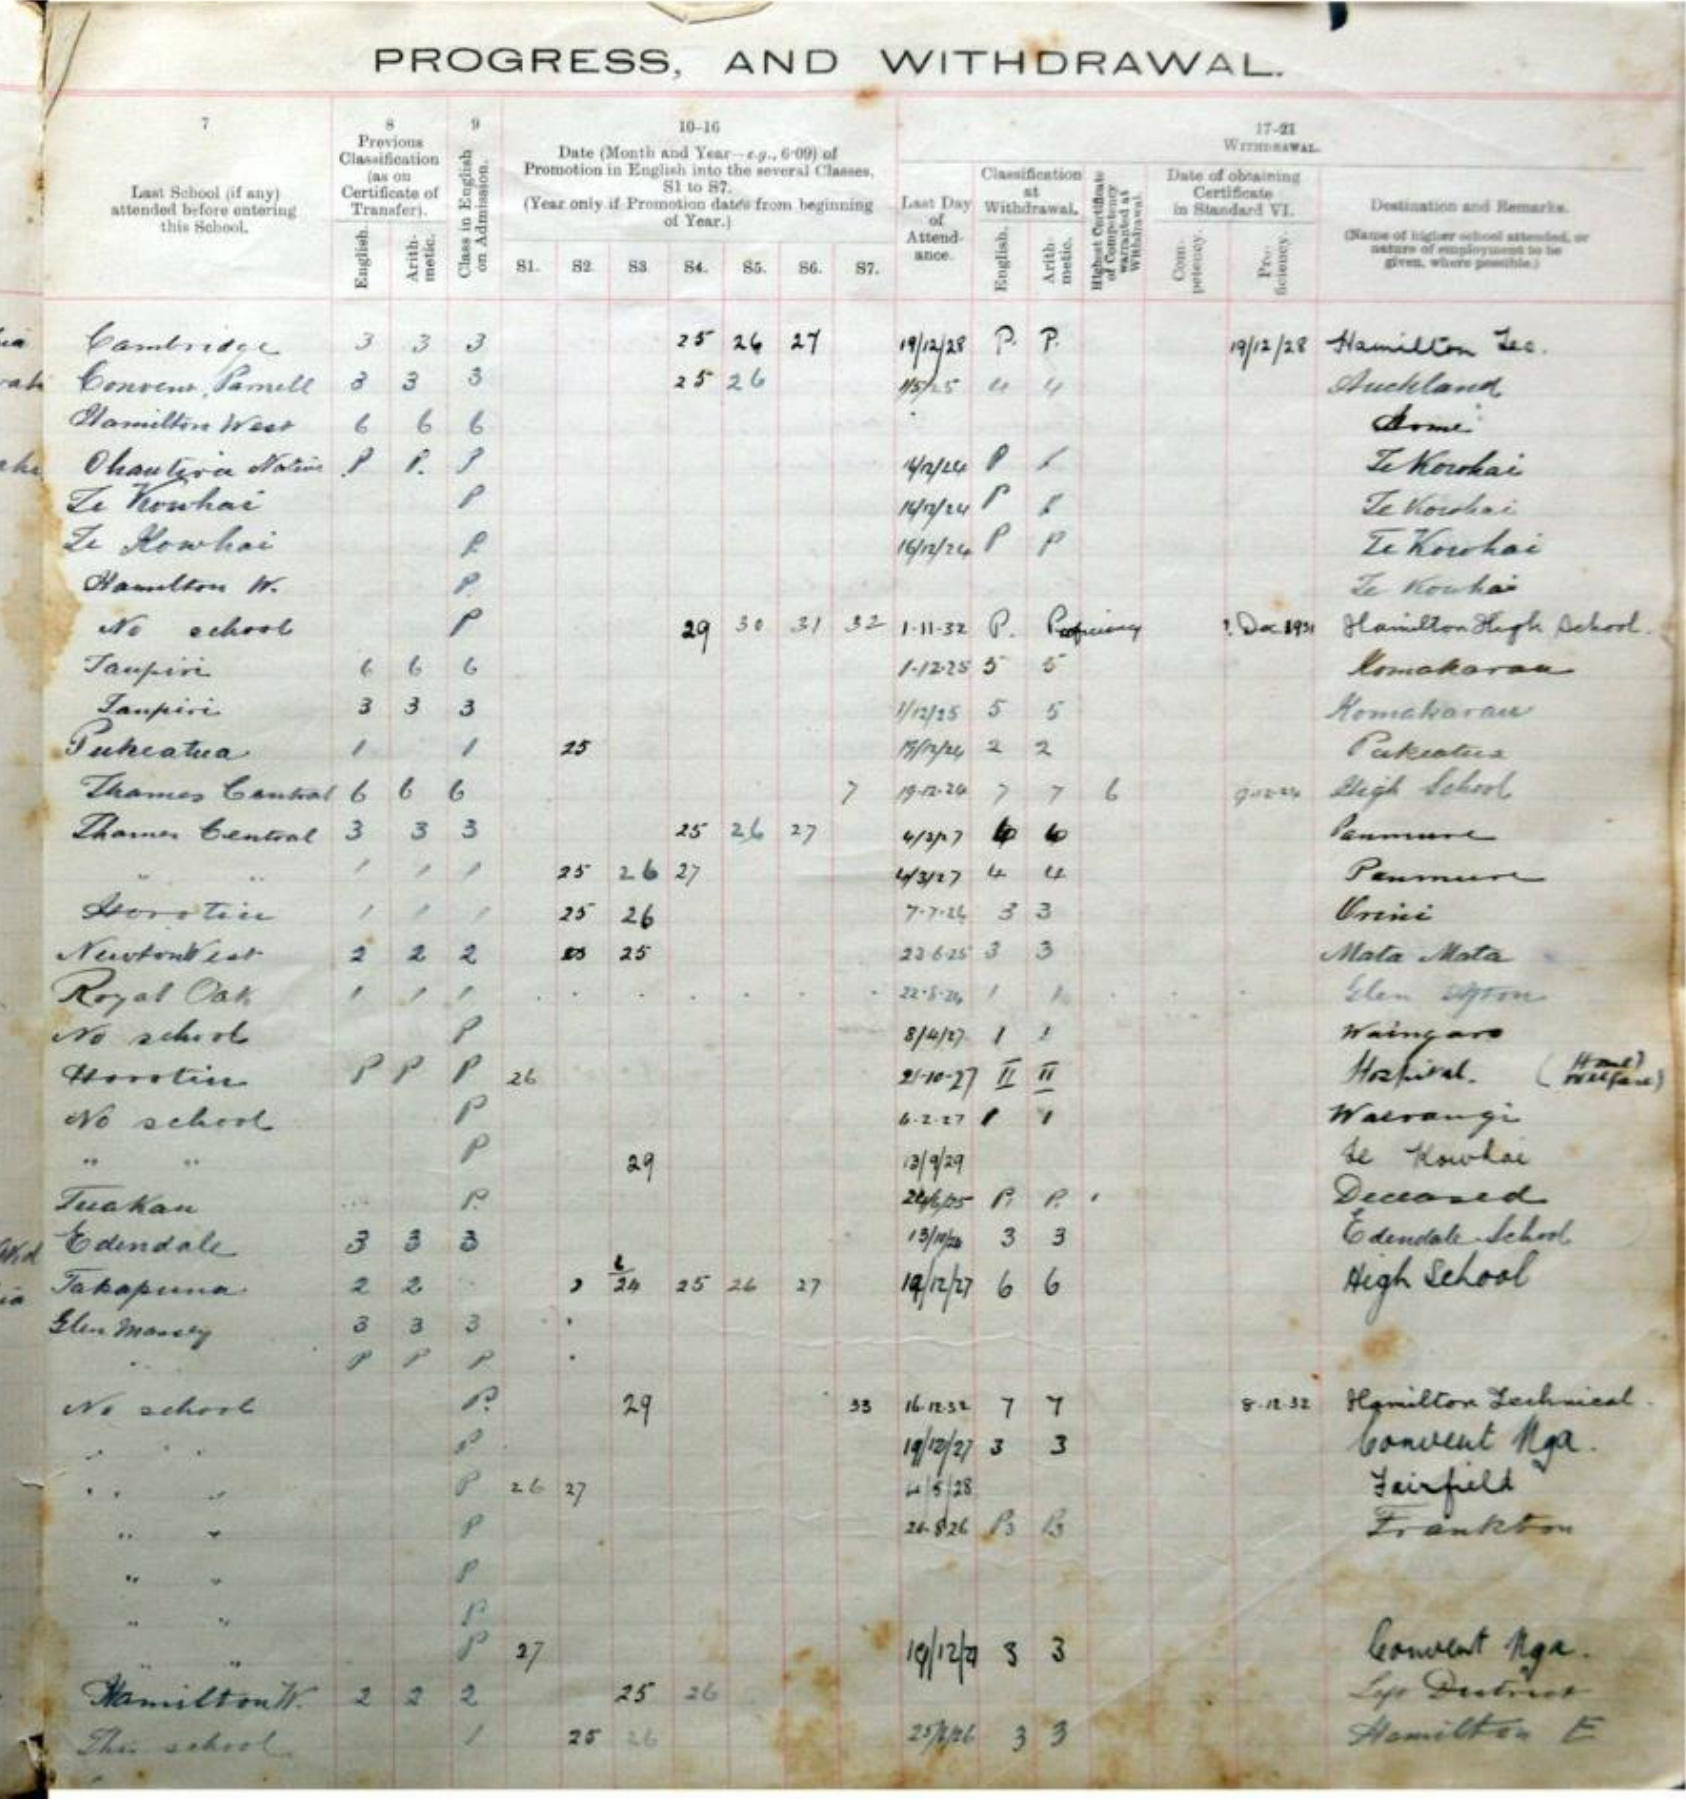 PROGRESS, AND WITHDRAWAL.
7
8
9
10-16
17-21
Last School (if any) attended before entering this School.
Previous Classification (as on Certificate of Transfer).
English.
Arithmetic.
Class in English on Admission.
Date (Month and Year—e.g., 6·09) of Promotion in English into the several Classes, S1 to S7.
(Year only if Promotion dates from beginning of Year.)
S1. S2. S3 S4. S5. S6. S7.
WITHDRAWAL.
Last Day of Attendance.
Classification at Withdrawal.
English.
Arithmetic.
Highest Certificate of Competency warranted at Withdrawal
Date of obtaining Certificate in Standard VI.
Competency.
Proficiency.
Destination and Remarks.
(Name of higher school attended, or nature of employment to be given, where possible.)
Cambridge 3 3 3 25 26 27 19/12/28 P. P. 19/12/28 Hamilton Tec.
Convent, Parnell 3 3 3 25 26 4 4 Auckland
Hamilton West 6 6 6 Home
Native P P. P P Te Kowhai
Te Kowhai P 16/12/24 P P Te Kowhai
Te Kowhai P 16/12/24 P P Te Kowhai
Hamilton W. P Te Kowhai
No school P 29 30 31 32 1-11-32 P. Proficiency Dec 1931 Hamilton High School.
Taupiri 6 6 6 1-12-25 5 5 Komakarau
Taupiri 3 3 3 1/12/25 5 5 Komakarau
Pukeatua 1 1 25 2 2 Pukeatua
Thames Central 6 6 6 7 19-12-24 7 7 6 High School
Thames Central 3 3 3 25 26 27 4/3/27 6 6 Panmure
" " 1 1 1 25 26 27 4/3/27 4 4 Panmure
Horotiu 1 1 1 25 26 7-7-26 3 3 Orini
Newton West 2 2 2 25 23-6-25 3 3 Mata Mata
Royal Oak 1 1 1 1 1 Glen Afton
No school P 8/4/27 1 1 Waingaro
Horotiu P P P 26 21-10-27 II II Hospital.
No school P 6-2-27 1 1 Waerangi
" " P 29 13/9/29 Te Kowhai
Tuakau P. P. P. Deceased
Edendale 3 3 3 3 3 Edendale School
Takapuna 2 2 24 25 26 27 19/12/27 6 6 High School
Glen Massey 3 3 3
" P P P
No school P. 29 33 16-12-32 7 7 8-12-32 Hamilton Technical.
" " P 19/12/27 3 3 Convent Nga.
" " P 26 27 4/5/28 Fairfield
" " P 26-8-26 Frankton
" " P
" " P
" " P 27 3 3 Convent Nga.
Hamilton W. 2 2 2 25 26 District
This school 1 25 26 3 3 Hamilton E